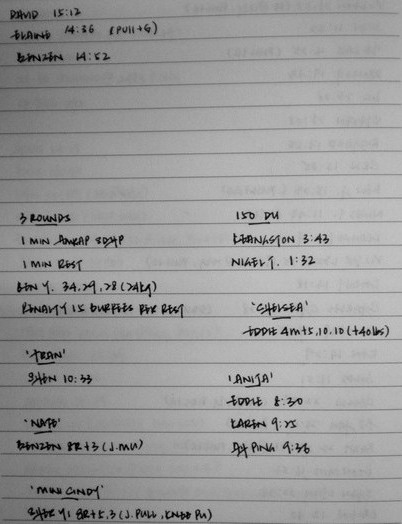 DAVID 15:12
ELAINE 14:36 (PULL+G)
BENZEN 14:52
3 ROUNDS
1 MIN AMRAP SDHP
1 MIN REST
BEN Y. 34,29,28 (24kg)
PENALTY 15 BURPEES PER REST
'FRAN'
SHEN 10:33
'NATE'
BENZEN 8R+3 (J.MU)
'MINI CINDY'
SHER YI 8R+5,3 (J.PULL, KNEE PU)
150 DU
KEANGSTON 3:43
NIGEL T. 1:32
'CHELSEA'
EDDIE 4m+5,10,10 (+40lbs)
'ANITA'
EDDIE 8:30
KAREN 9:25
PING 9:36